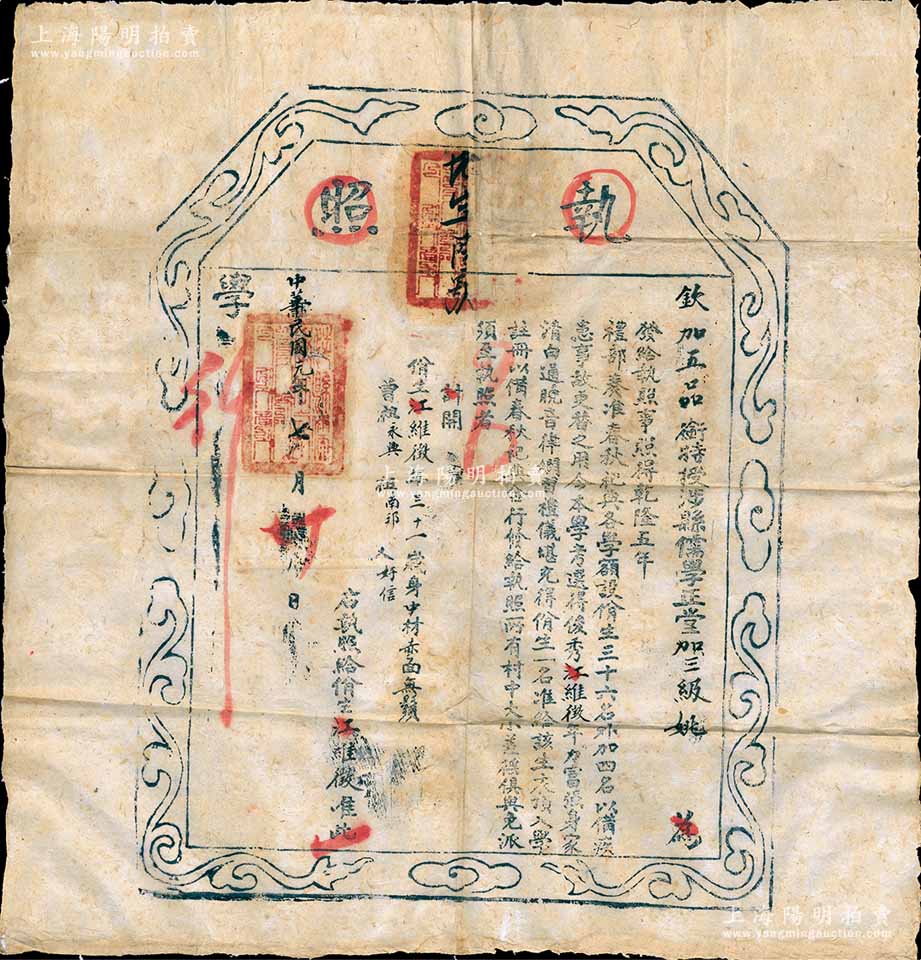 上海陽明拍賣
www.yangmingauction.com
執照
欽加五品銜特授縣儒學正堂加三級姚 為
發給執照事照得乾隆五年
禮部奏准春秋祀典各學額設佾生三十六名外加四名以備
事故更替之用今本學考選得俊秀江維徵年力富強身家
清白通曉音律嫻習禮儀堪充得佾生一名准給該生衣頂入學
註冊以備春秋祀典行修給執照所有村中大小差徭俱與免派
須至執照者
計開
佾生江維徵年二十一歲身中材赤面無鬚
曾祖永典 祖南祁 父好信
右執照給佾生江維徵准此
中華民國元年七月廿日
學
行
上海陽明拍賣
www.yangmingauction.com
上海陽明拍賣
www.yangmingauction.com